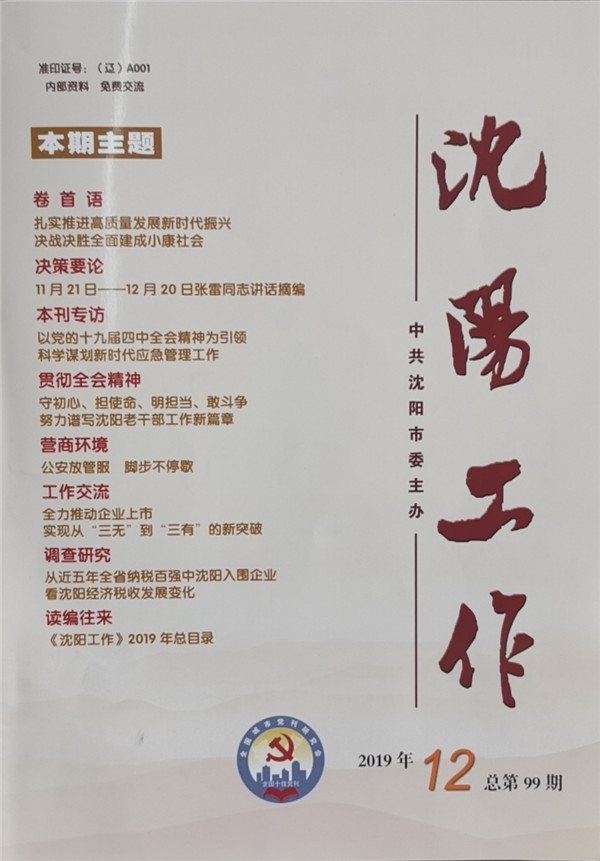 准印证号：（辽）A001
内部资料 免费交流
本期主题
卷首语
扎实推进高质量发展新时代振兴
决战决胜全面建成小康社会
决策要论
11月21日——12月20日张雷同志讲话摘编
本刊专访
以党的十九届四中全会精神为引领
科学谋划新时代应急管理工作
贯彻全会精神
守初心、担使命、明担当、敢斗争
努力谱写沈阳老干部工作新篇章
营商环境
公安放管服 脚步不停歇
工作交流
全力推动企业上市
实现从“三无”到“三有”的新突破
调查研究
从近五年全省纳税百强中沈阳入围企业
看沈阳经济税收发展变化
读编往来
《沈阳工作》2019年总目录
沈陽工作
中共沈阳市委主办
全国城市党刊研究会
全国十佳党刊
2019年 12 总第99期